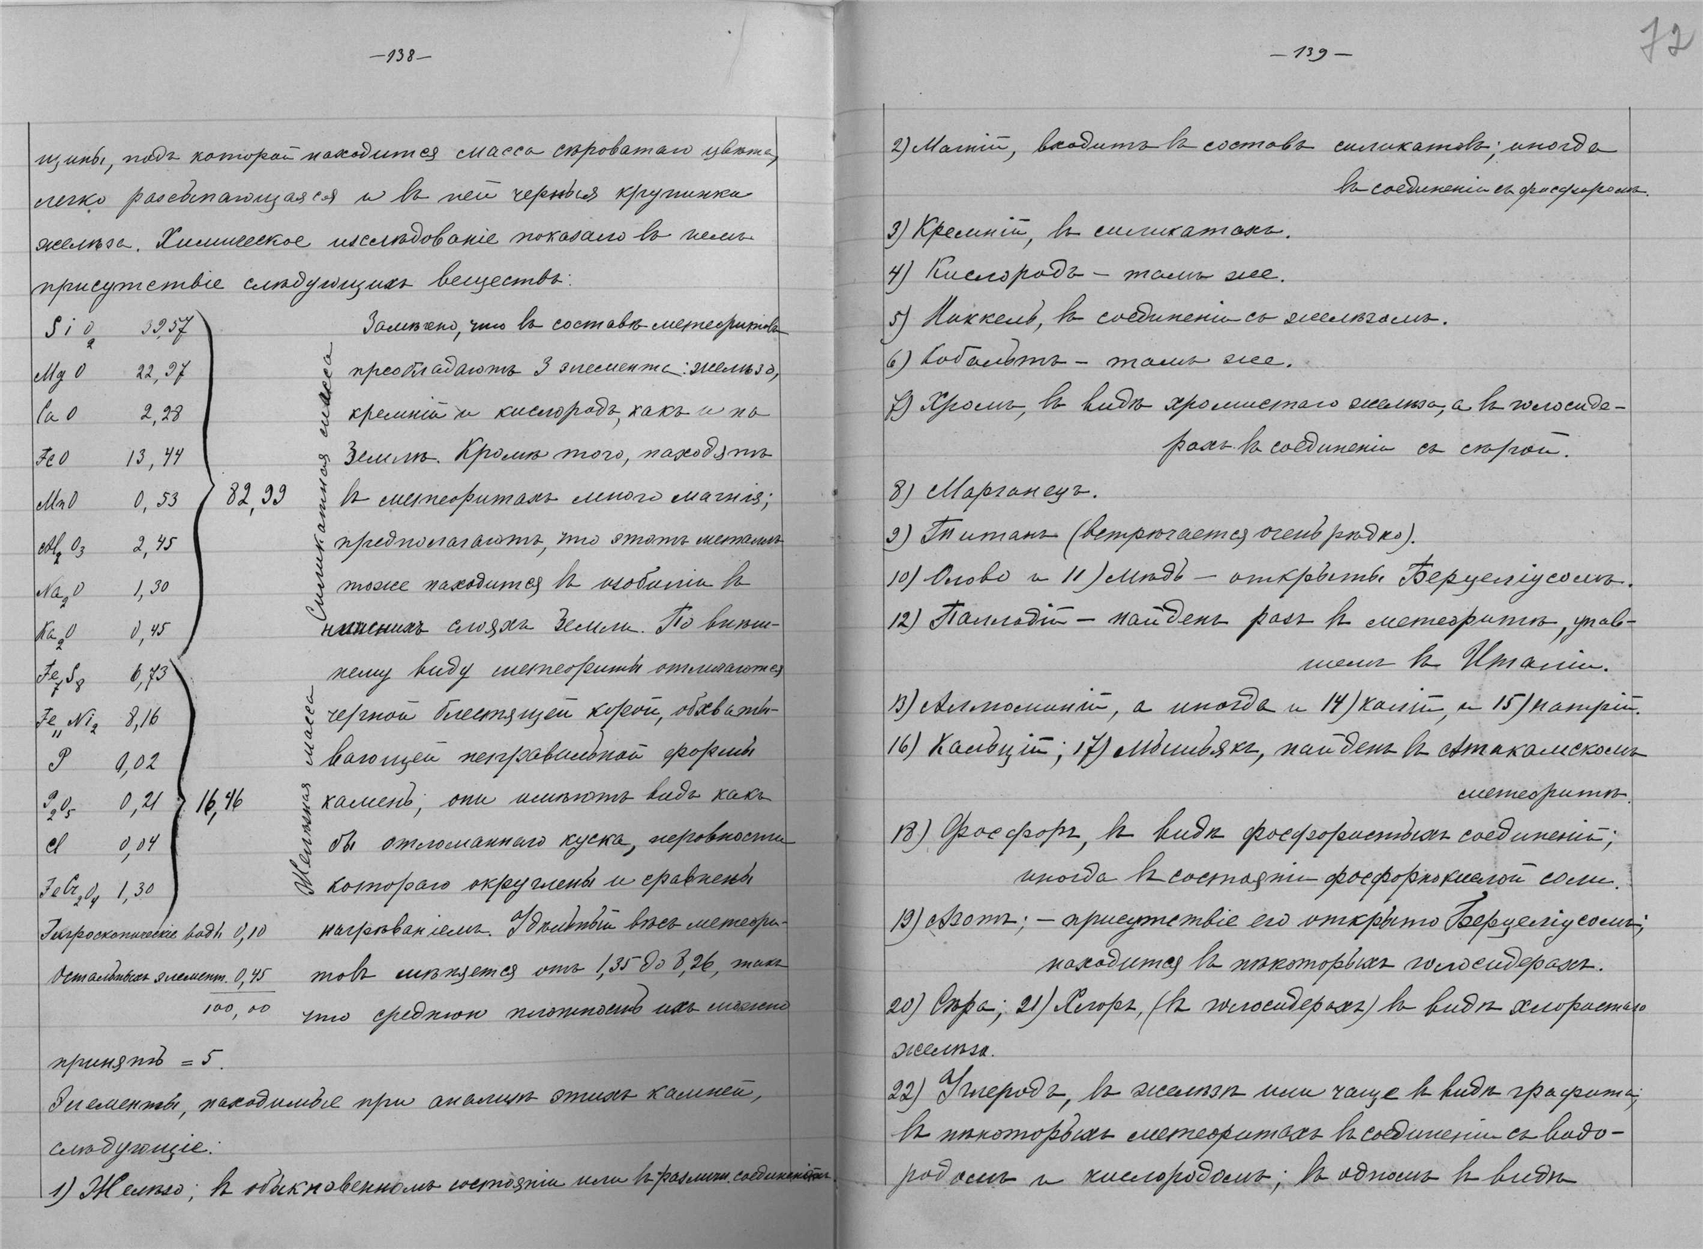 —138—
щины, подъ которой находится масса сѣроватаго цвѣта,
легко разсыпающаяся и въ ней черныя крупинки
желѣза. Химическое изслѣдованіе показало въ немъ
присутствіе слѣдующихъ веществъ:
Si O2 39,57
Mg O 22,97
Ca O 2,28
Fe O 13,44
Mn O 0,53
Al2 O3 2,45
Na2 O 1,30
Ka2 O 0,45
82,99
Силикатная масса
Fe7 S8 6,73
Fe11 Ni2 8,16
P 0,02
P2O5 0,21
Cl 0,04
FeCr2O4 1,30
16,46
Желѣзная масса
Гигроскопическіе воды 0,10
Остальныхъ элемент. 0,45
100,00
Замѣчено, что въ составѣ метеоритовъ
преобладаютъ 3 элемента: желѣзо,
кремній и кислородъ, какъ и на
Землѣ. Кромѣ того, находятъ
въ метеоритахъ много магнія;
предполагаютъ, что этотъ металлъ
тоже находится въ изобиліи въ
нижнихъ слояхъ Земли. По внѣш-
нему виду метеориты отличаются
черной блестящей корой, обхваты-
вающей неправильной формы
камень; они имѣютъ видъ какъ
бы отломаннаго куска, неровности
котораго округлены и сравнены
нагрѣваніемъ. Удѣльный вѣсъ метеори-
товъ мѣняется отъ 1,35 до 8,26, такъ
что среднюю плотность ихъ можно
принять = 5.
Элементы, находимые при анализѣ этихъ камней,
слѣдующіе:
1) Желѣзо; въ обыкновенномъ состояніи или въ различ. соединеніяхъ
—139—
72
2) Магній, входитъ въ составъ силикатовъ; иногда
въ соединеніи съ фосфоромъ.
3) Кремній, въ силикатахъ.
4) Кислородъ – тамъ же.
5) Никкель, въ соединеніи съ желѣзомъ.
6) Кобальтъ – тамъ же.
7) Хромъ, въ видѣ хромистаго желѣза, а въ голосиде-
рахъ въ соединеніи съ сѣрой.
8) Марганецъ.
9) Титанъ (встрѣчается очень рѣдко).
10) Олово и 11) мѣдь – открыты Берцеліусомъ.
12) Палладій – найденъ разъ въ метеоритѣ, упав-
шемъ въ Италіи.
13) Аллюминій, а иногда и 14) калій, и 15) натрій.
16) Кальцій; 17) Мышьякъ, найденъ въ Атакамскомъ
метеоритѣ.
18) Фосфоръ, въ видѣ фосфористыхъ соединеній;
иногда въ состояніи фосфорнокислой соли.
19) Азотъ; – присутствіе его открыто Берцеліусомъ;
находится въ нѣкоторыхъ голосидерахъ.
20) Сѣра; 21) Хлоръ, (въ голосидерахъ) въ видѣ хлористаго
желѣза.
22) Углеродъ, въ желѣзѣ или чаще въ видѣ графита;
въ нѣкоторыхъ метеоритахъ въ соединеніи съ водо-
родомъ и кислородомъ; въ одномъ въ видѣ